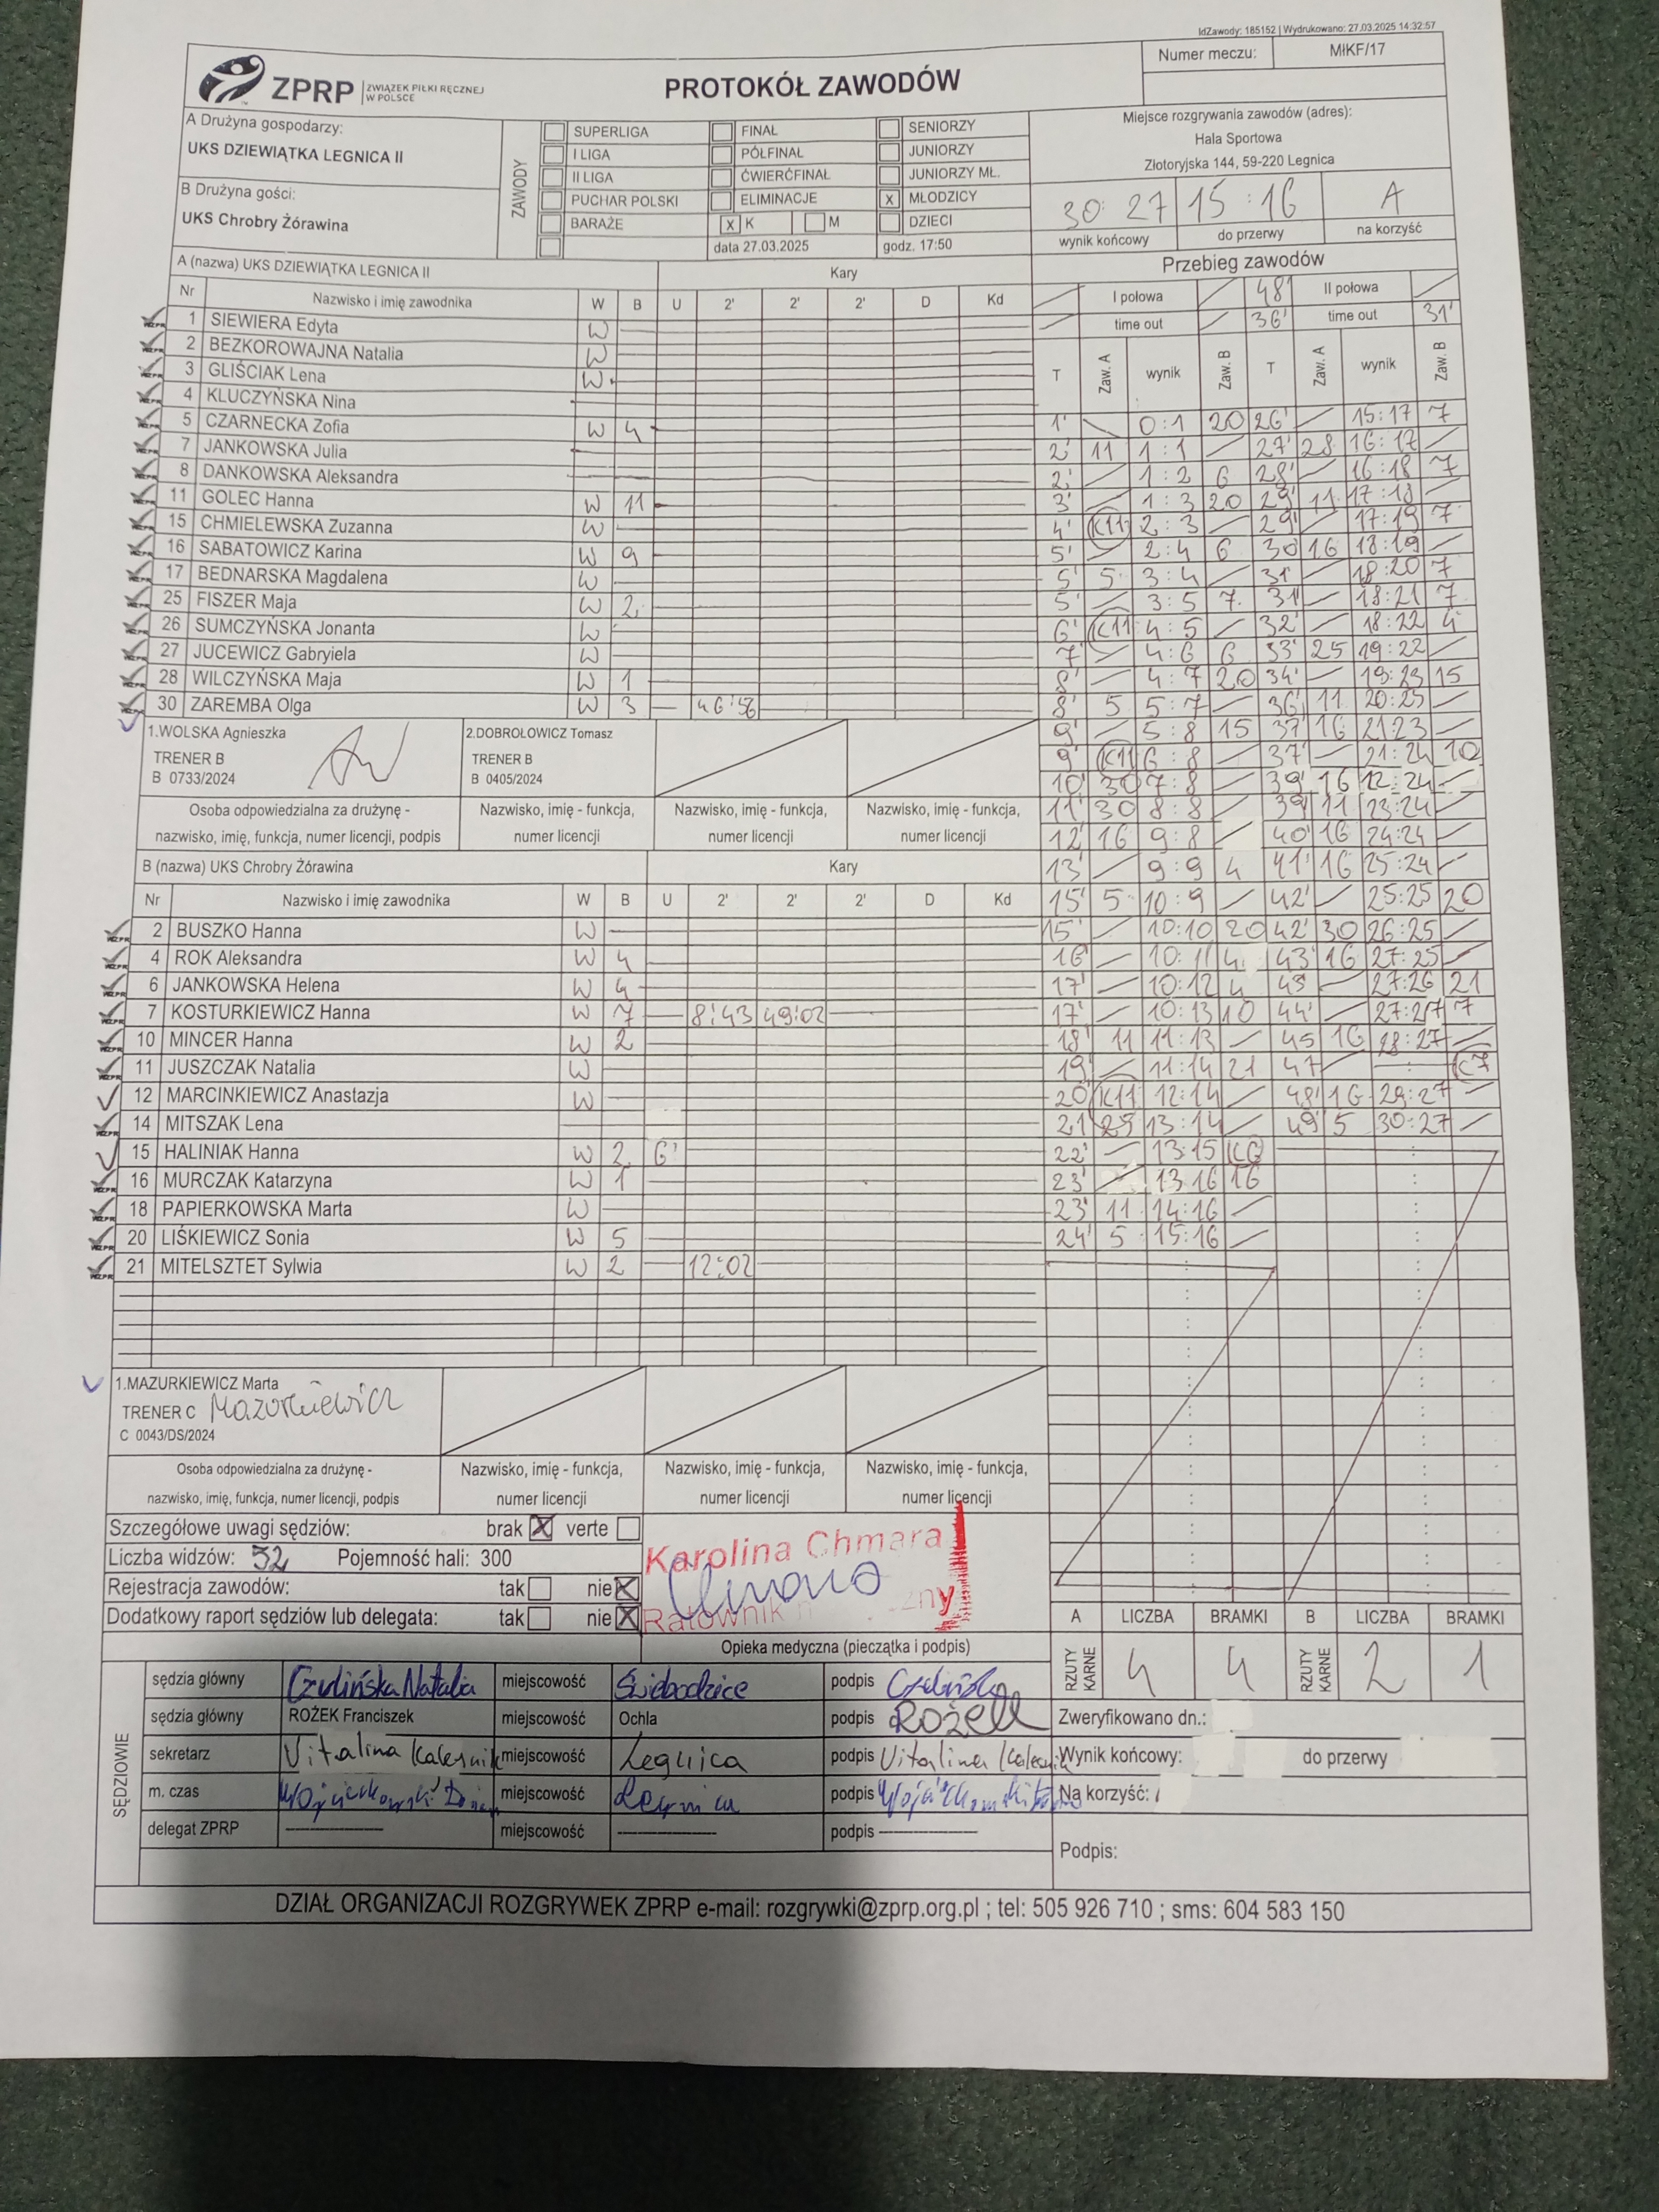 IdZawody: 185152 | Wydrukowano: 27.03.2025 14:32:57
Numer meczu: MłKF/17
ZPRP ZWIĄZEK PIŁKI RĘCZNEJ W POLSCE
PROTOKÓŁ ZAWODÓW
A Drużyna gospodarzy:
UKS DZIEWIĄTKA LEGNICA II
B Drużyna gości:
UKS Chrobry Żórawina
ZAWODY
SUPERLIGA FINAŁ SENIORZY
I LIGA PÓŁFINAŁ JUNIORZY
II LIGA ĆWIERĆFINAŁ JUNIORZY MŁ.
PUCHAR POLSKI ELIMINACJE x MŁODZICY
BARAŻE x K M DZIECI
data 27.03.2025 godz. 17:50
Miejsce rozgrywania zawodów (adres):
Hala Sportowa
Złotoryjska 144, 59-220 Legnica
30:27 15:16 A
wynik końcowy do przerwy na korzyść
A (nazwa) UKS DZIEWIĄTKA LEGNICA II Kary
Nr Nazwisko i imię zawodnika W B U 2' 2' 2' D Kd
1 SIEWIERA Edyta W
2 BEZKOROWAJNA Natalia W
3 GLIŚCIAK Lena W
4 KLUCZYŃSKA Nina
5 CZARNECKA Zofia W 4
7 JANKOWSKA Julia
8 DANKOWSKA Aleksandra
11 GOLEC Hanna W 11
15 CHMIELEWSKA Zuzanna W
16 SABATOWICZ Karina W 9
17 BEDNARSKA Magdalena W
25 FISZER Maja W 2
26 SUMCZYŃSKA Jonanta W
27 JUCEWICZ Gabryiela W
28 WILCZYŃSKA Maja W 1
30 ZAREMBA Olga W 3 46:56
1.WOLSKA Agnieszka
TRENER B
B 0733/2024
2.DOBROŁOWICZ Tomasz
TRENER B
B 0405/2024
Osoba odpowiedzialna za drużynę - nazwisko, imię, funkcja, numer licencji, podpis
Nazwisko, imię - funkcja, numer licencji
Nazwisko, imię - funkcja, numer licencji
Nazwisko, imię - funkcja, numer licencji
B (nazwa) UKS Chrobry Żórawina Kary
Nr Nazwisko i imię zawodnika W B U 2' 2' 2' D Kd
2 BUSZKO Hanna W
4 ROK Aleksandra W 4
6 JANKOWSKA Helena W 4
7 KOSTURKIEWICZ Hanna W 7 8:43 49:02
10 MINCER Hanna W 2
11 JUSZCZAK Natalia W
12 MARCINKIEWICZ Anastazja W
14 MITSZAK Lena
15 HALINIAK Hanna W 2 6'
16 MURCZAK Katarzyna W 1
18 PAPIERKOWSKA Marta W
20 LIŚKIEWICZ Sonia W 5
21 MITELSZTET Sylwia W 2 12:02
1.MAZURKIEWICZ Marta
TRENER C Mazurkiewicz
C 0043/DS/2024
Osoba odpowiedzialna za drużynę - nazwisko, imię, funkcja, numer licencji, podpis
Nazwisko, imię - funkcja, numer licencji
Nazwisko, imię - funkcja, numer licencji
Nazwisko, imię - funkcja, numer licencji
Przebieg zawodów
I połowa 48' II połowa
time out 36' time out 31'
T Zaw. A wynik Zaw. B T Zaw. A wynik Zaw. B
1' 0:1 20 26' 15:17 7
2' 11 1:1 27' 28 16:17
2' 1:2 6 28' 16:18 7
3' 1:3 20 29' 11 17:18
4' K11 2:3 29' 17:19 7
5' 2:4 6 30 16 18:19
5' 5 3:4 31' 18:20 7
5' 3:5 7 31' 18:21 7
6' K11 4:5 32' 18:22 4
7' 4:6 6 33' 25 19:22
8' 4:7 20 34' 19:23 15
8' 5 5:7 36' 11 20:23
9' 5:8 15 37' 16 21:23
9' K11 6:8 37' 21:24 10
10' 30 7:8 39' 16 12:24
11' 30 8:8 39' 11 23:24
12' 16 9:8 40' 16 24:24
13' 9:9 4 41' 16 25:24
15' 5 10:9 42' 25:25 20
15' 10:10 20 42' 30 26:25
16' 10:11 4 43' 16 27:25
17' 10:12 4 43' 27:26 21
17' 10:13 10 44' 27:27 7
18' 11 11:13 45 16 28:27
19' 11:14 21 47' K7
20' K11 12:14 48' 16 29:27
21' 25 13:14 49' 5 30:27
22' 13:15 K6
23' 13:16 16
23' 11 14:16
24' 5 15:16
Szczegółowe uwagi sędziów: brak X verte
Liczba widzów: 52 Pojemność hali: 300
Rejestracja zawodów: tak nie X
Dodatkowy raport sędziów lub delegata: tak nie X
Karolina Chmara
Ratownik
Opieka medyczna (pieczątka i podpis)
A LICZBA BRAMKI B LICZBA BRAMKI
RZUTY KARNE 4 4 RZUTY KARNE 2 1
SĘDZIOWIE
sędzia główny Czulińska Natalia miejscowość Świebodzice podpis
sędzia główny ROŻEK Franciszek miejscowość Ochla podpis Rożek
sekretarz Vitalina miejscowość Legnica podpis Vitalina
m. czas miejscowość Legnica podpis
delegat ZPRP miejscowość podpis
Zweryfikowano dn.:
Wynik końcowy: do przerwy
Na korzyść:
Podpis:
DZIAŁ ORGANIZACJI ROZGRYWEK ZPRP e-mail: rozgrywki@zprp.org.pl ; tel: 505 926 710 ; sms: 604 583 150